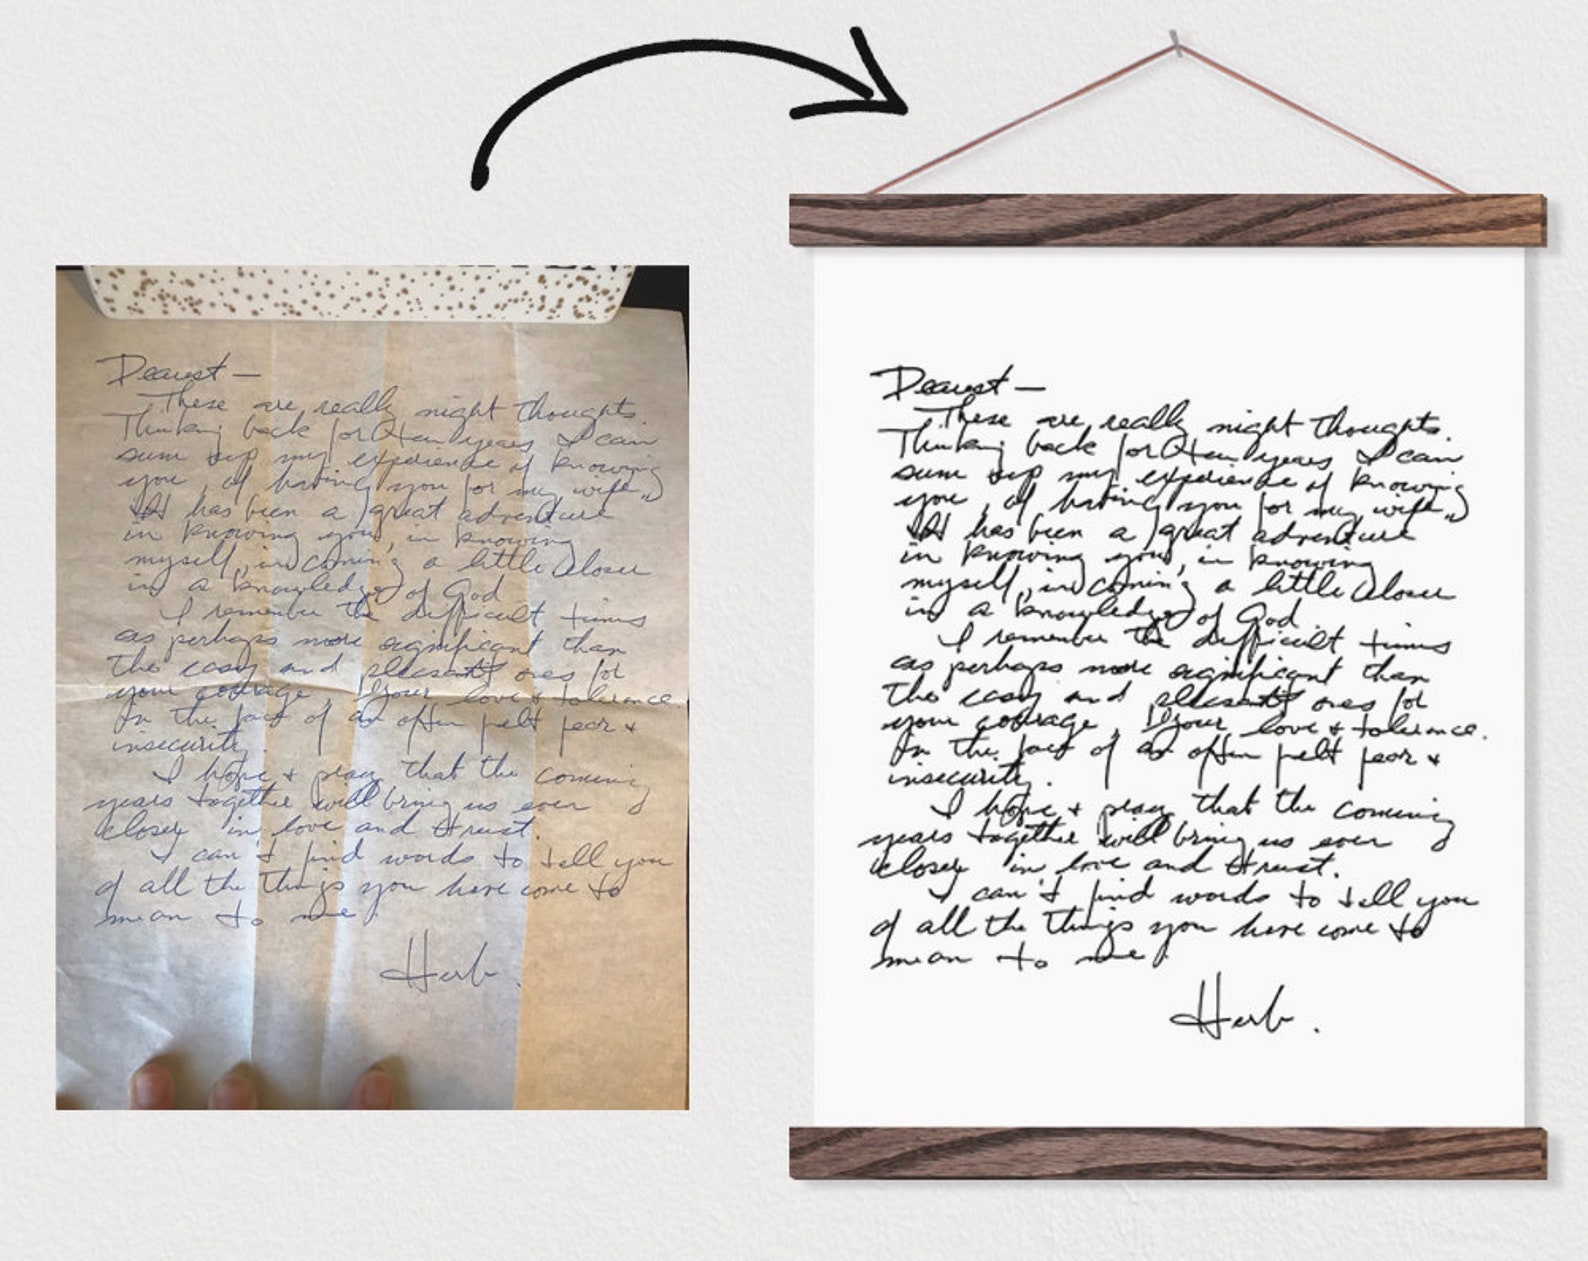 Dearest —
These are really night thoughts.
Thinking back for ten years I can
sum up my experience of knowing
you, of having you for my wife.
It has been a great adventure
in knowing you, in knowing
myself, in coming a little closer
in a knowledge of God
I remember the difficult times
as perhaps more significant than
the easy and pleasant ones for
your courage, your love & tolerance
in the face of an often felt fear &
insecurity.
I hope & pray that the coming
years together will bring us ever
closer in love and trust.
I can't find words to tell you
of all the things you have come to
mean to me
Herb.
Dearest —
These are really night thoughts.
Thinking back for ten years I can
sum up my experience of knowing
you, of having you for my wife.
It has been a great adventure
in knowing you, in knowing
myself, in coming a little closer
in a knowledge of God
I remember the difficult times
as perhaps more significant than
the easy and pleasant ones for
your courage, your love & tolerance.
in the face of an often felt fear &
insecurity.
I hope & pray that the coming
years together will bring us ever
closer in love and trust.
I can't find words to tell you
of all the things you have come to
mean to me
Herb.